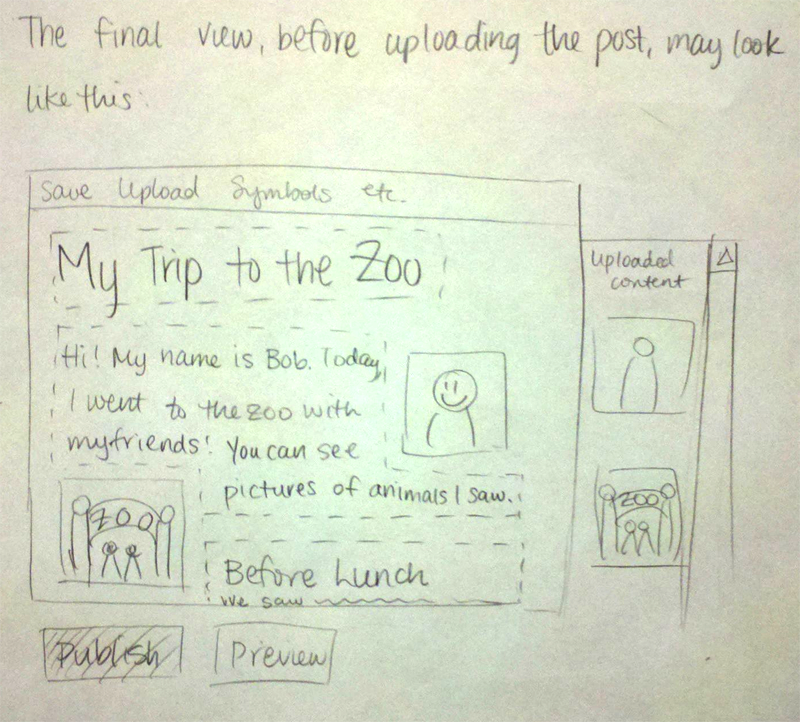 The final view, before uploading the post, may look
like this:
Save Upload Symbols etc.
My Trip to the Zoo
Hi! My name is Bob. Today,
I went to the zoo with
my friends! You can see
pictures of animals I saw.
ZOO
Before Lunch
We saw
Publish Preview
Uploaded
content
ZOO